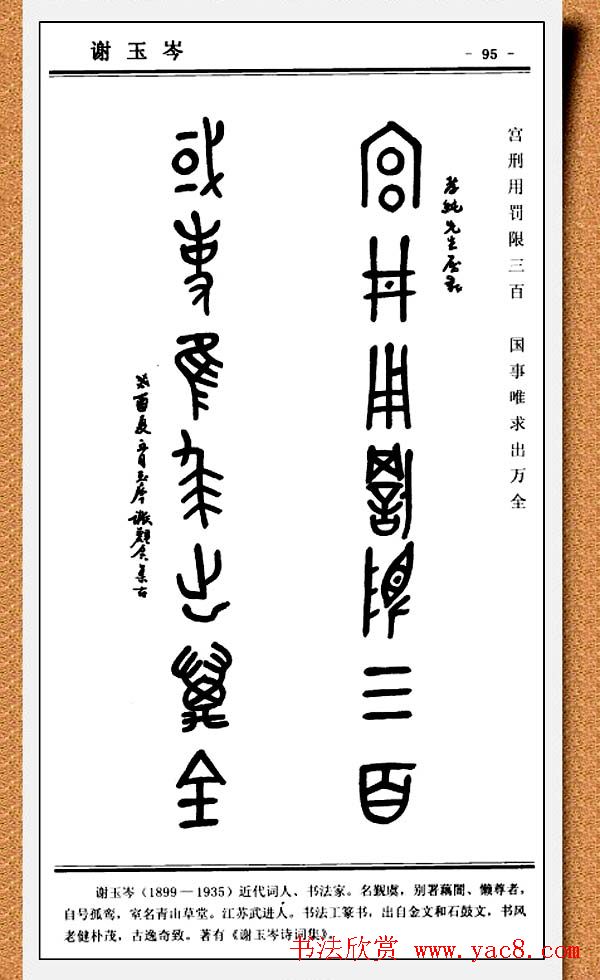 谢玉岑
- 95 -
宫刑用罚限三百 国事唯求出万全
先生
宫井用罰限三百
或事隹求出萬全
癸酉夏五月玉岑謝覲虞集古
谢玉岑(1899—1935)近代词人、书法家。名觐虞,别署藕闇、懒尊者,
自号孤鸾,室名青山草堂。江苏武进人。书法工篆书,出自金文和石鼓文,书风
老健朴茂,古逸奇致。著有《谢玉岑诗词集》。
书法欣赏 www.yac8.com